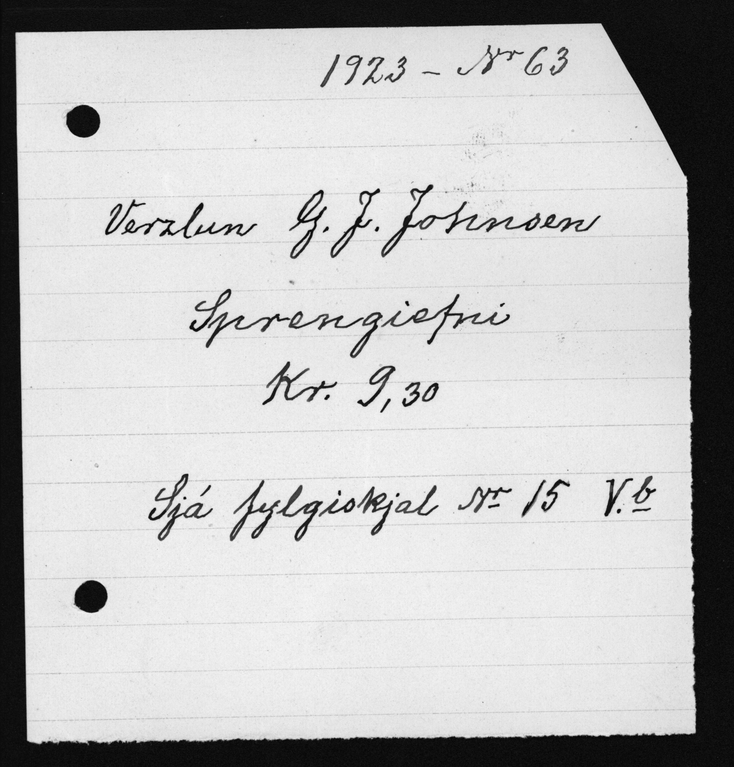 1923 - Nr 63
Verzlun G. J. Johnsen
Sprengiefni
Kr. 9,30
Sjá fylgiskjal Nr 15 V.b